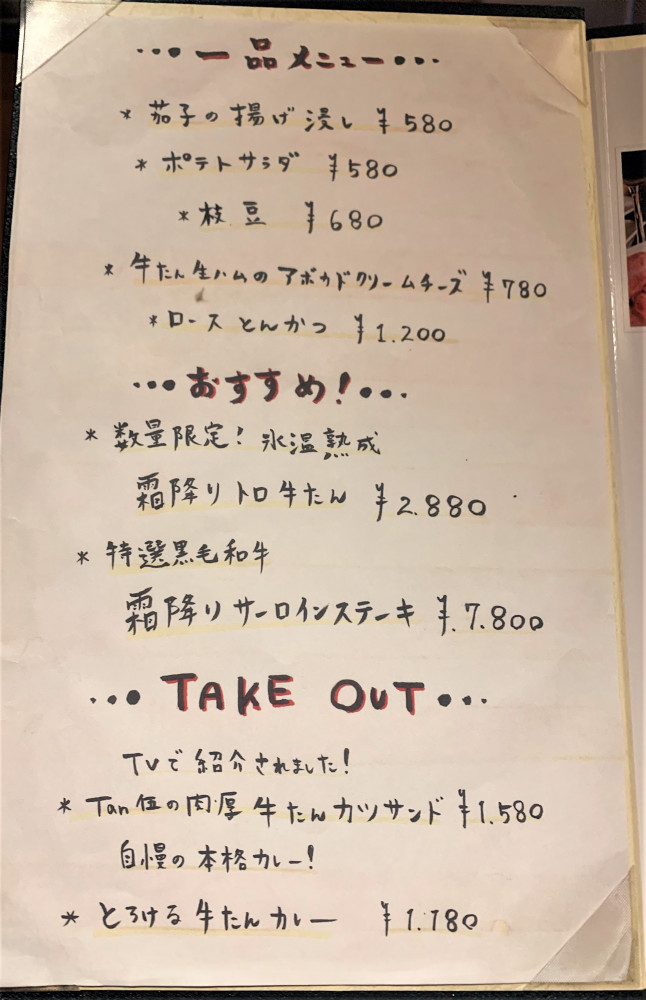 ・・・一品メニュー・・・
* 茄子の揚げ浸し ¥580
* ポテトサラダ ¥580
* 枝豆 ¥680
* 牛たん生ハムのアボカドクリームチーズ ¥780
* ロースとんかつ ¥1.200
・・・おすすめ!・・・
* 数量限定! 氷温熟成
霜降りトロ牛たん ¥2.880
* 特選黒毛和牛
霜降りサーロインステーキ ¥.7.800
・・・TAKE OUT・・・
TVで紹介されました!
* Tan伍の肉厚牛たんカツサンド ¥1.580
自慢の本格カレー!
* とろける牛たんカレー ¥1.180